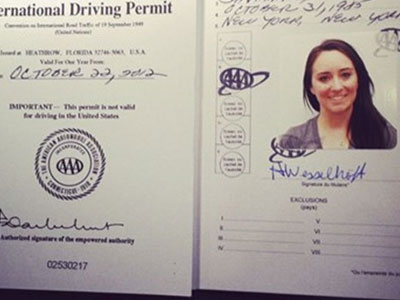 International Driving Permit
Convention on International Road Traffic of 19 September 1949
(United Nations)
Issued at HEATHROW, FLORIDA 32746-5063, U.S.A
Valid For One Year From:
OCTOBER 22, 2012
IMPORTANT— This permit is not valid
for driving in the United States
THE AMERICAN AUTOMOBILE ASSOCIATION
INCORPORATED
AAA
CONNECTICUT 1910
Authorized signature of the empowered authority
02530217
OCTOBER 31, 1985
NEW YORK, NEW YORK
AAA
AAA
AWesselhoft
Signature du titulaire
EXCLUSIONS
(pays)
I V
II VI
III VII
IV VIII